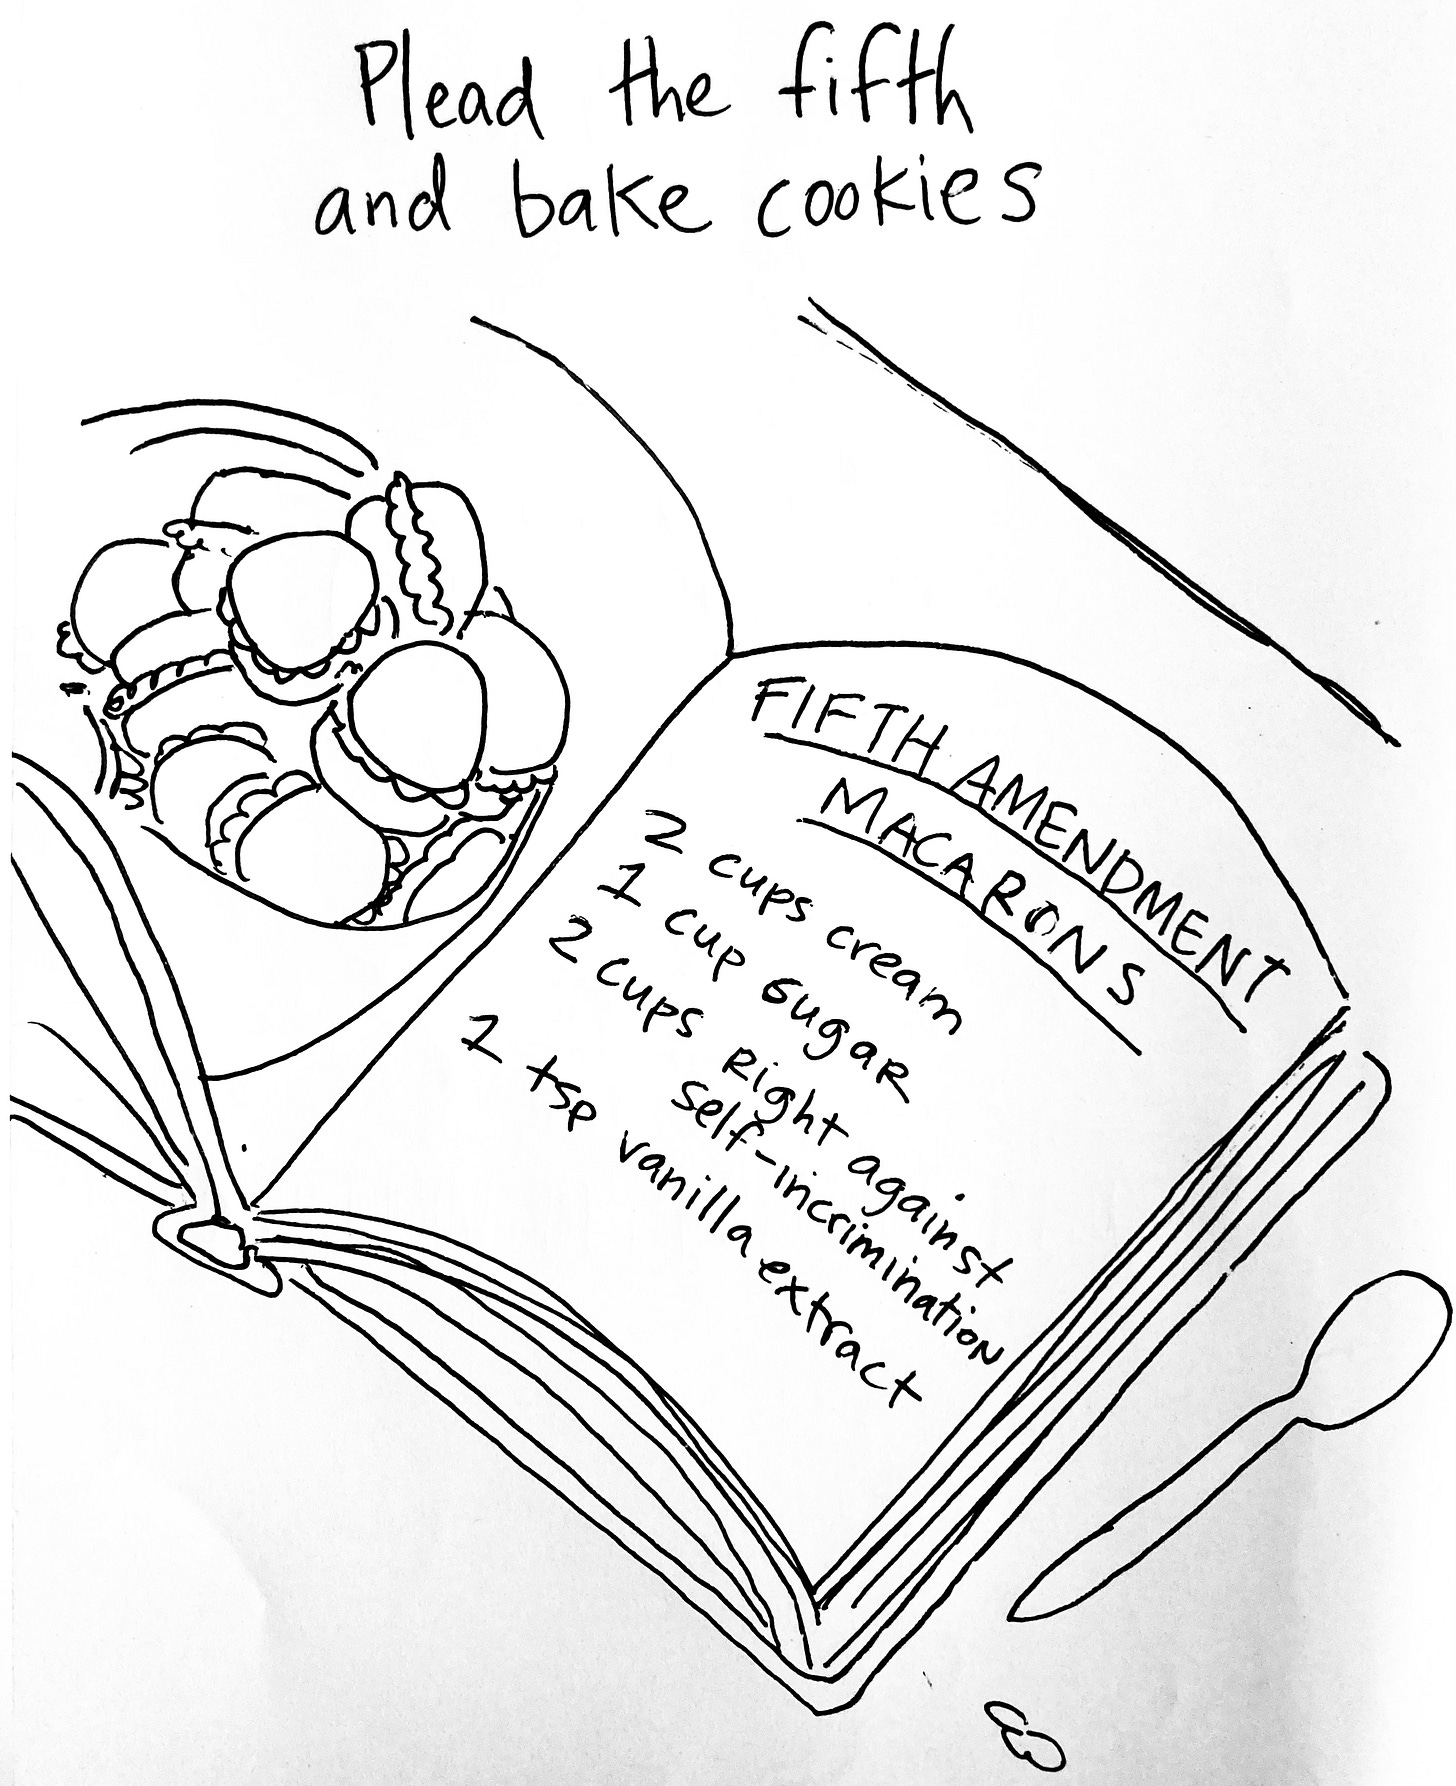 Plead the fifth
and bake cookies
FIFTH AMENDMENT
MACARONS
2 cups cream
1 cup sugar
2 cups right against
self-incrimination
1 tsp vanilla extract